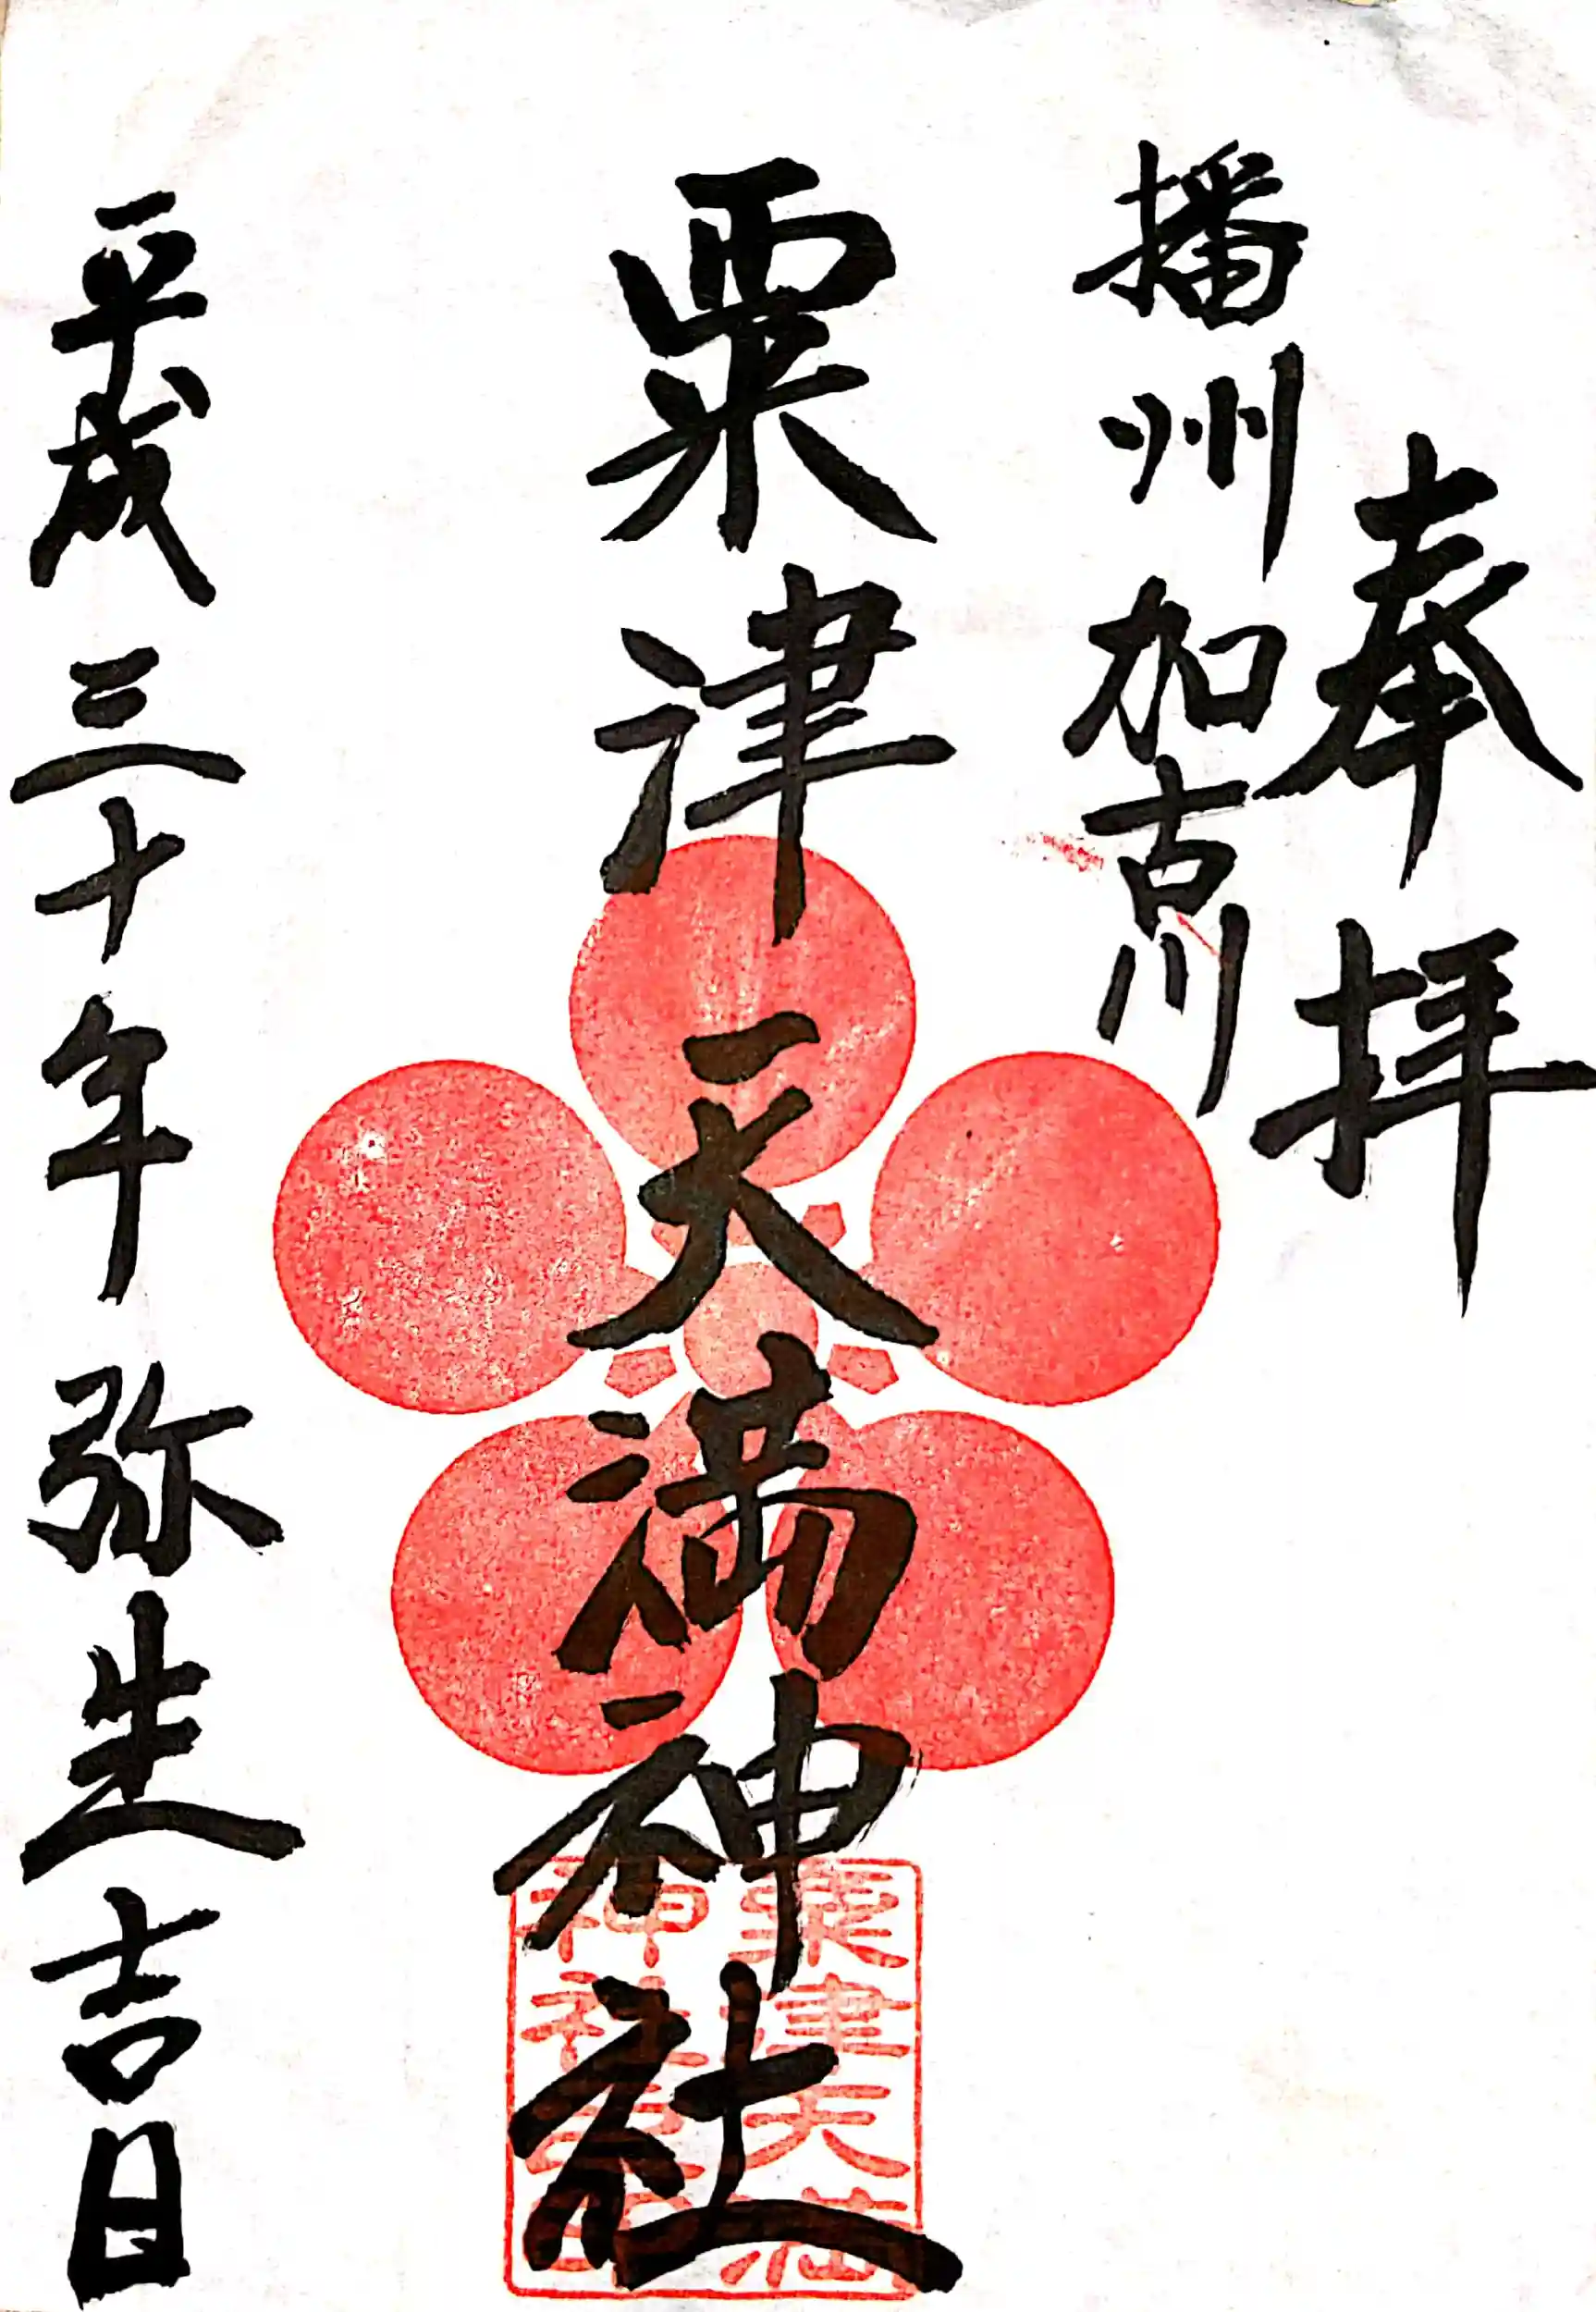 奉拝
播州加古川
粟津天満神社
平成三十年弥生吉日
粟津天満
神社